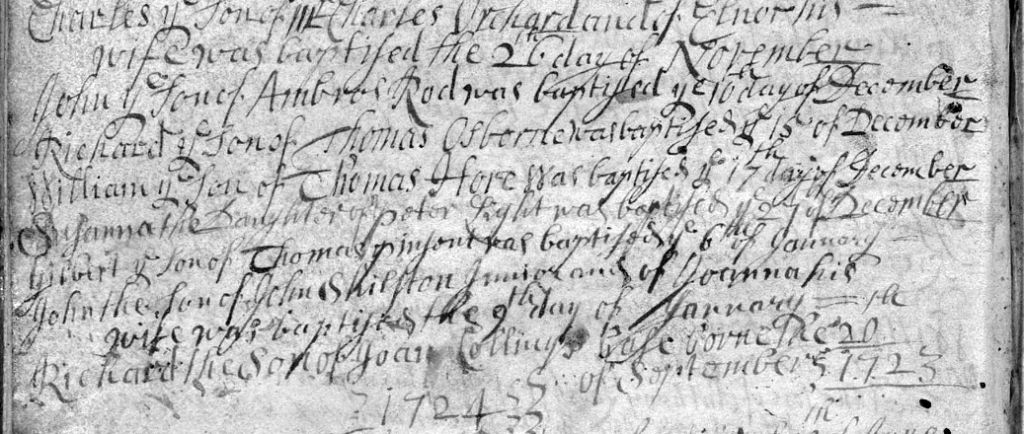 Charles ye Son of Mr Charles Orchard and of Elnor his
wife was baptised the 26th day of November
John ye Son of Ambros Rod was baptised ye 10th day of December
Richard ye Son of Thomas Osborne was baptised ye 15 of December
William ye Son of Thomas Hore was baptised ye 17th day of December
Susanna the Daughter of Peter was baptised ye 27 of December
Gilbert ye Son of Thomas pinsent was baptised ye 6th of January
John the Son of John Shilston Junior and of Joanna his
wife was baptised the 9th day of January
Richard the Son of Joan Collings base borne the 20th
of September 1723
1724